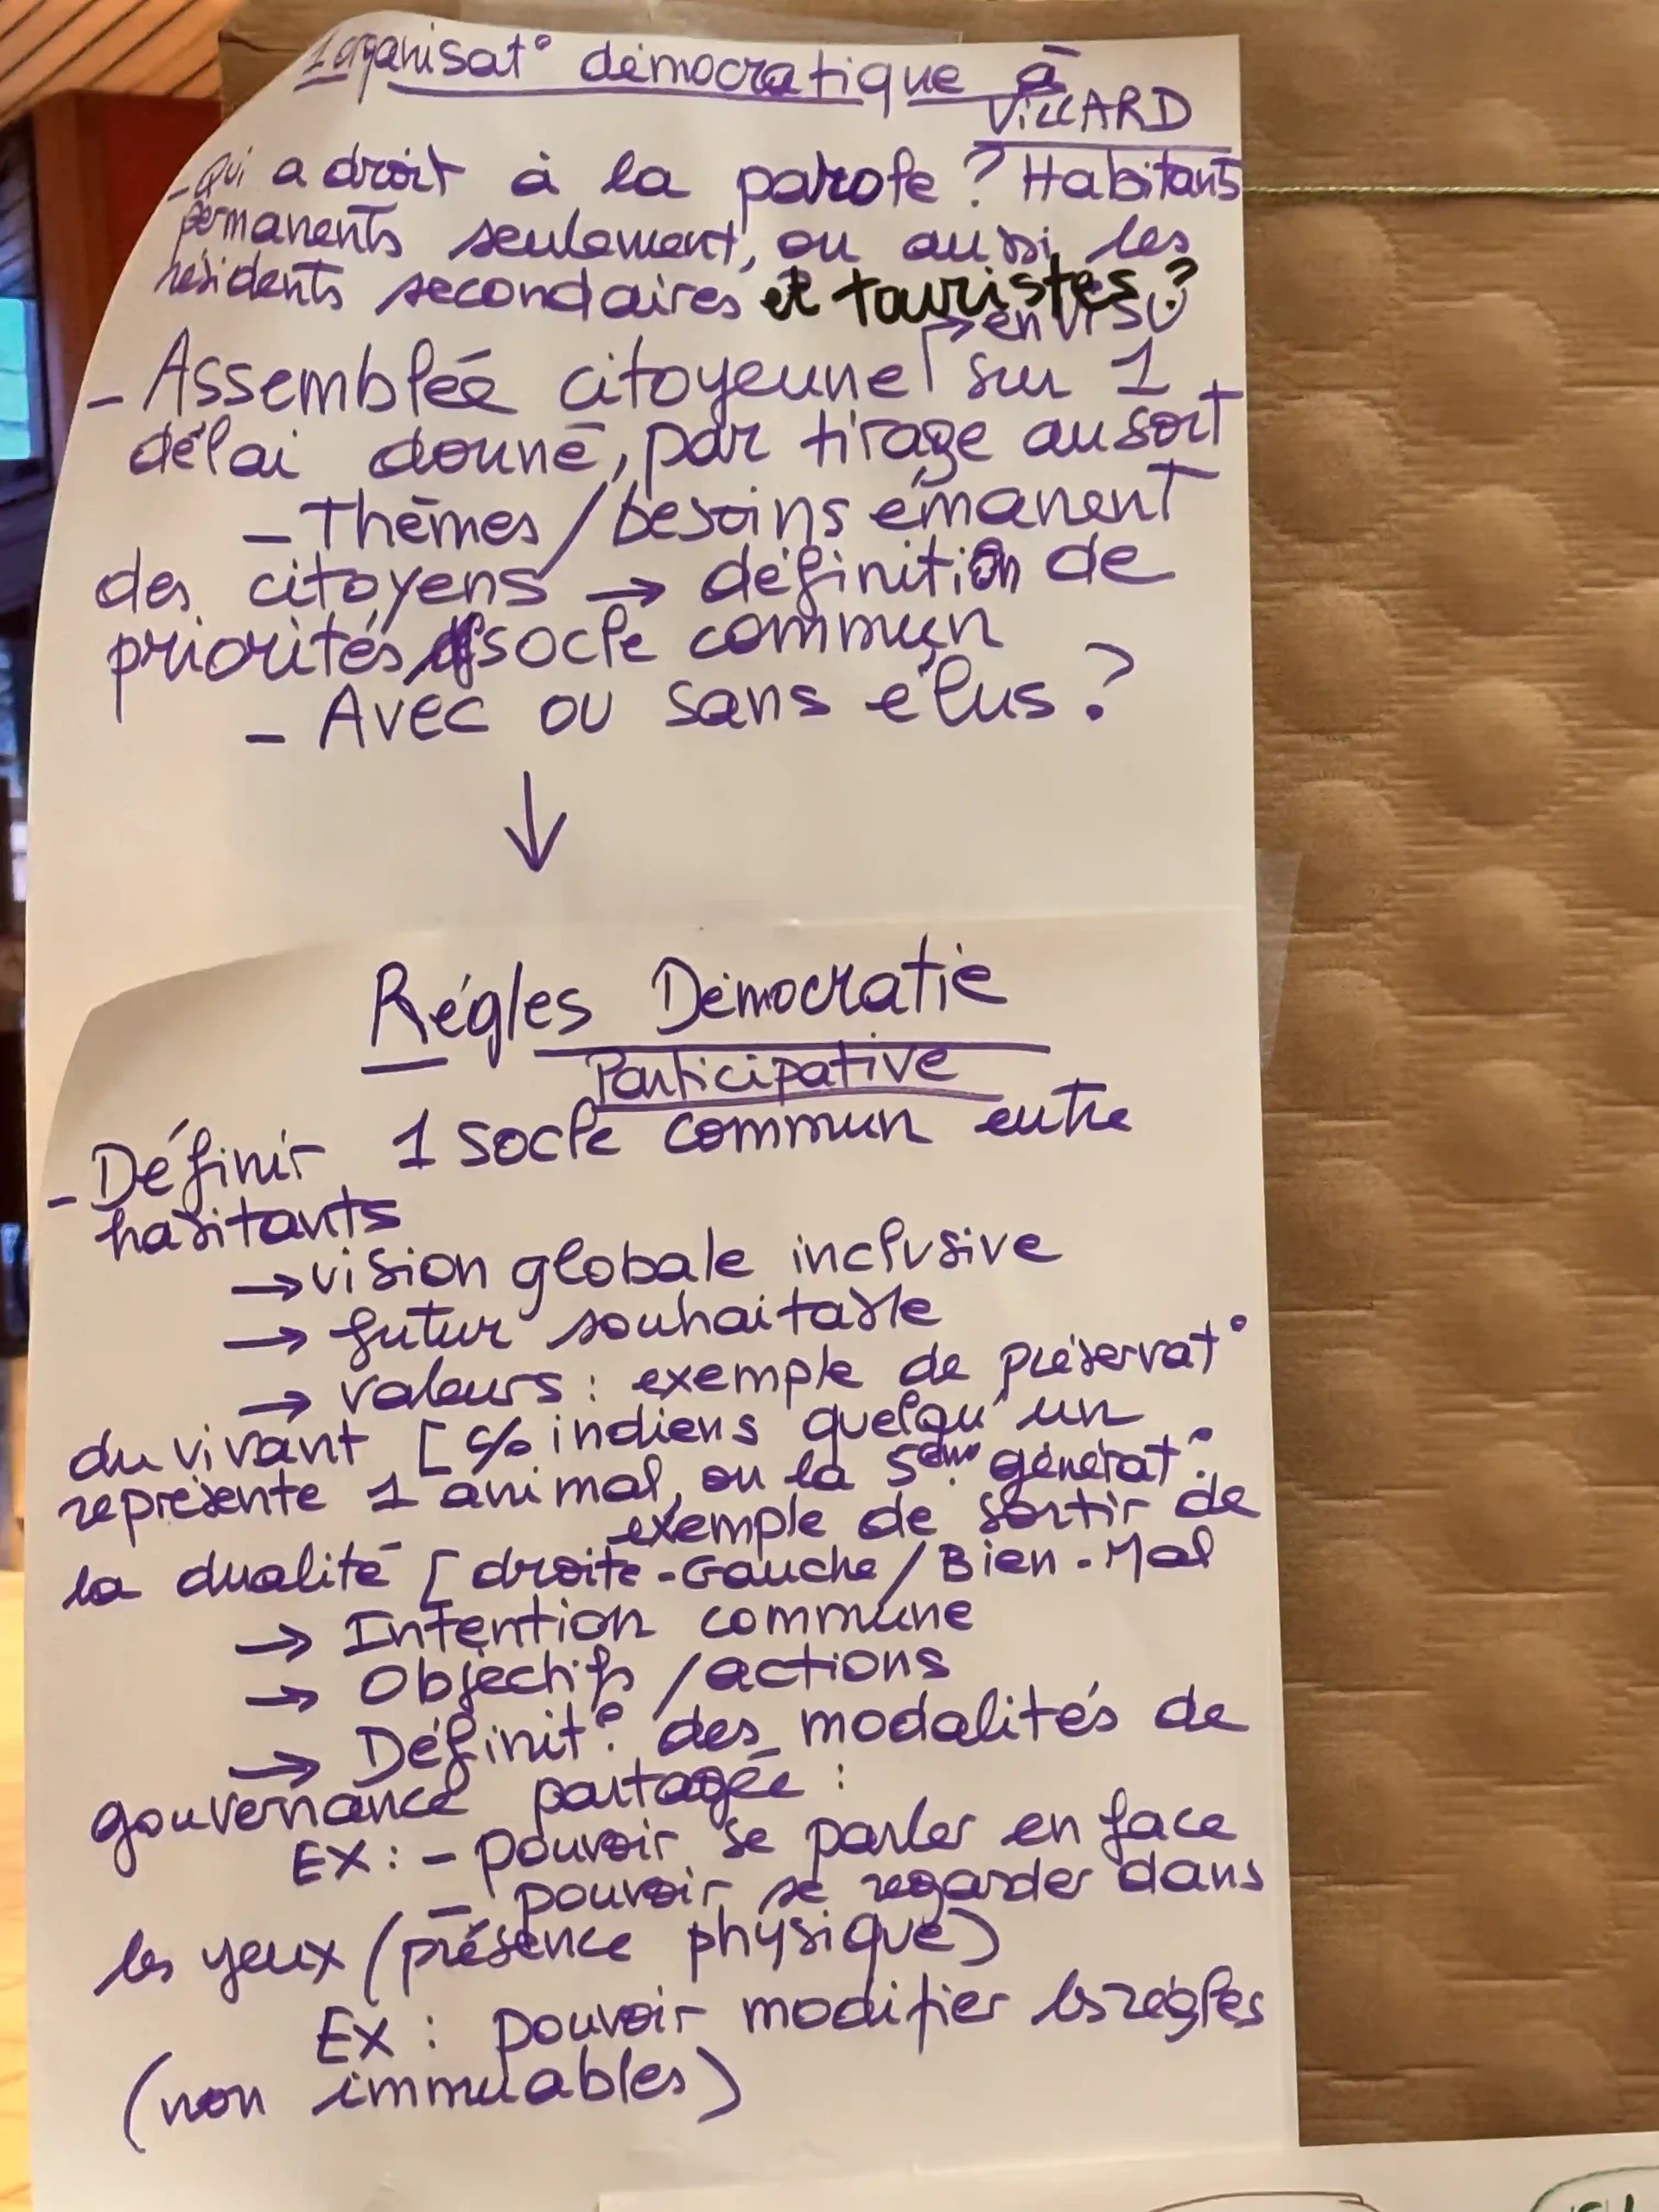 1 organisat° démocratique à
VILLARD
- Qui a droit à la parole ? Habitants
permanents seulement, ou aussi les
résidents secondaires et touristes ?
→ en VISU
- Assemblée citoyenne sur 1
délai donné, par tirage au sort
- Thèmes / besoins émanent
des citoyens → définition de
priorités, socle commun
- Avec ou sans élus ?
↓
Régles Démocratie
Participative
- Définir 1 socle commun entre
habitants
→ vision globale inclusive
→ futur souhaitable
→ valeurs : exemple de préservat°
du vivant [ c/o indiens quelqu'un
représente 1 animal, ou la 5ème générat°.
exemple de sortir de
la dualité [ droite - Gauche / Bien - Mal
→ Intention commune
→ Objectifs / actions
→ Définit° des modalités de
gouvernance partagée :
EX : - pouvoir se parler en face
- pouvoir se regarder dans
les yeux (présence physique)
EX : pouvoir modifier les règles
(non immuables)